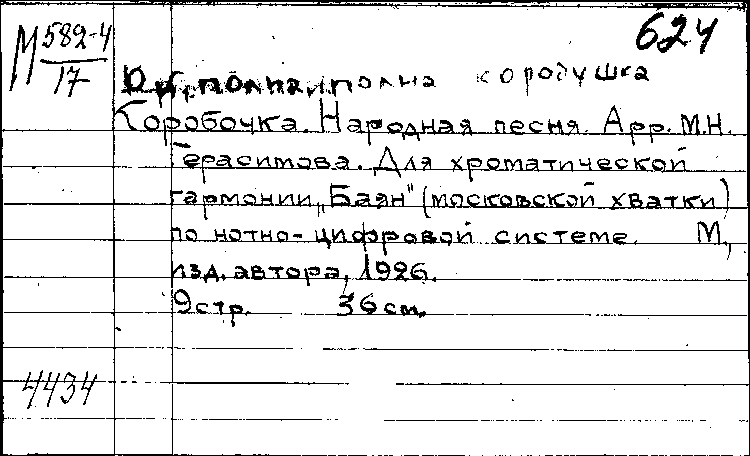 М 582-4/17
624
Ой, полна, полна коробушка
Коробочка. Народная песня. Арр. М.Н.
Герасимова. Для хроматической
гармонии „Баян" (московской хватки)
по нотно-цифровой системе. М.,
изд. автора, 1926.
9 стр. 36 см.
4434